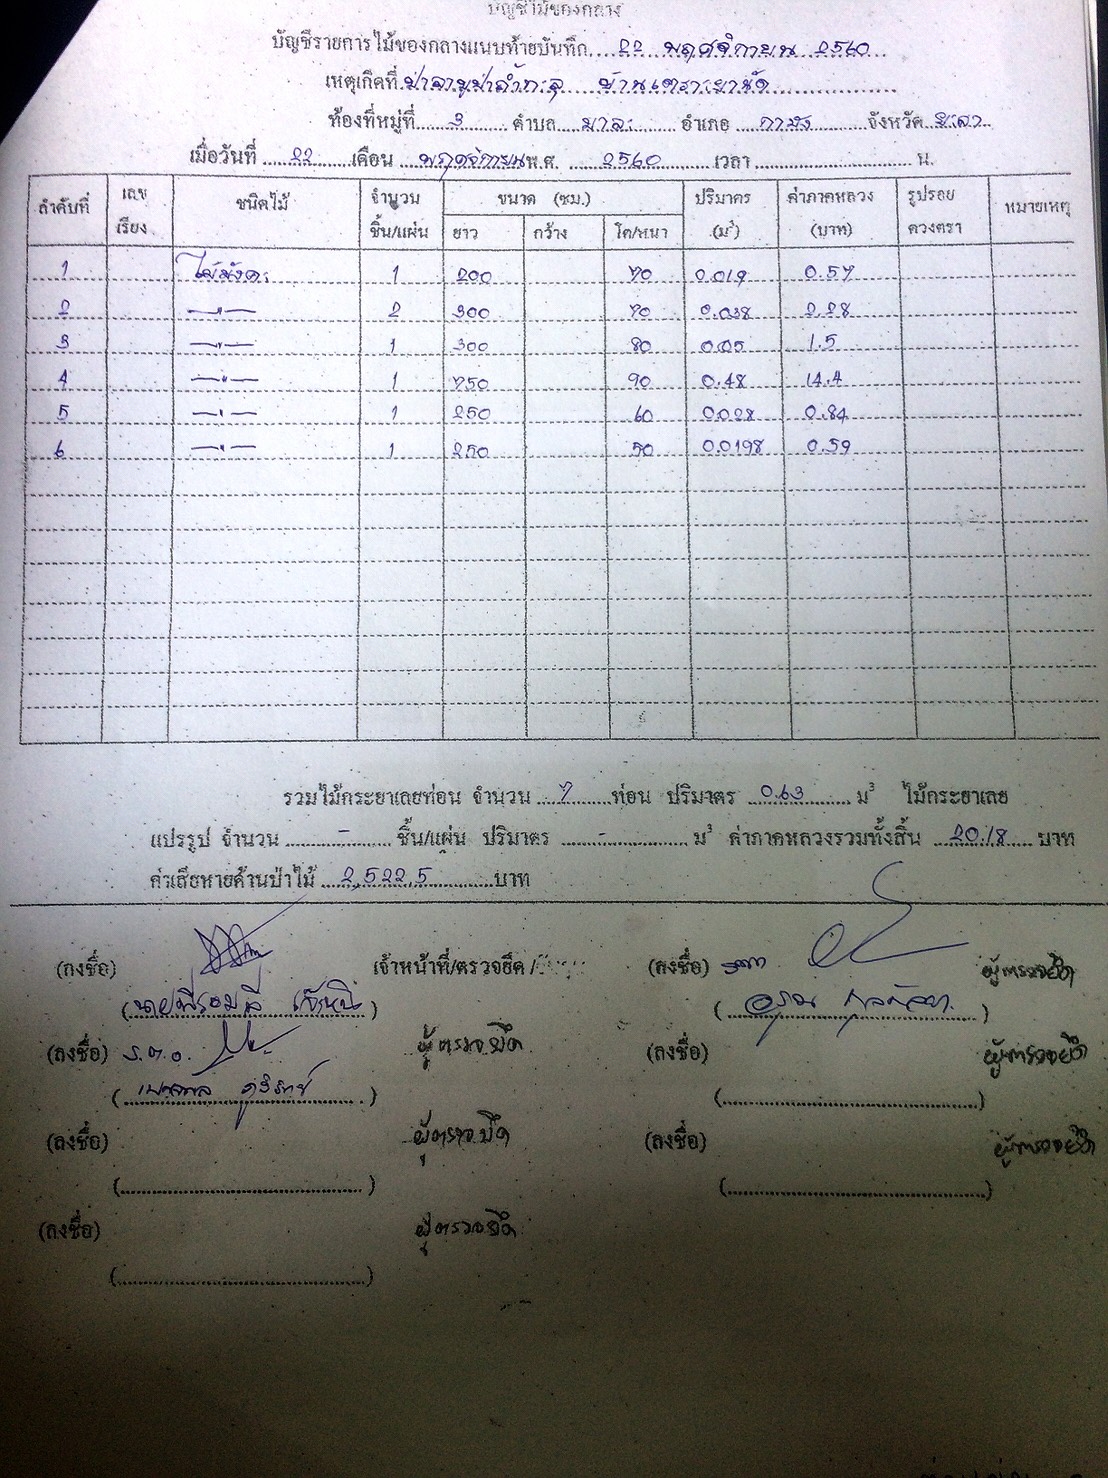 บัญชีไม้ของกลาง
บัญชีรายการไม้ของกลางแนบท้ายบันทึก 22 พฤศจิกายน 2560
เหตุเกิดที่ บ้าน
ท้องที่หมู่ที่ 3 ตำบล บาละ อำเภอ กาบัง จังหวัด ยะลา
เมื่อวันที่ 22 เดือน พฤศจิกายน พ.ศ. 2560 เวลา น.
ลำดับที่ เลขเรียง ชนิดไม้ จำนวน ชิ้น/แผ่น ขนาด (ซม.) ยาว กว้าง โต/หนา ปริมาตร (ม³) ค่าภาคหลวง (บาท) รูปรอยดวงตรา หมายเหตุ
1 1 200 70 0.019 0.57
2 —"— 2 300 70 0.038 2.28
3 —"— 1 300 80 0.05 1.5
4 —"— 1 750 90 0.48 14.4
5 —"— 1 250 60 0.028 0.84
6 —"— 1 250 50 0.0198 0.59
รวมไม้กระยาเลยท่อน จำนวน 7 ท่อน ปริมาตร 0.63 ม³ ไม้กระยาเลย
แปรรูป จำนวน - ชิ้น/แผ่น ปริมาตร - ม³ ค่าภาคหลวงรวมทั้งสิ้น 20.18 บาท
ค่าเสียหายด้านป่าไม้ 2,522.5 บาท
(ลงชื่อ) เจ้าหน้าที่/ตรวจยึด (ลงชื่อ) ผู้ตรวจยึด
(ลงชื่อ) ร.ต.อ. ผู้ตรวจยึด (ลงชื่อ) ผู้ตรวจยึด
(ลงชื่อ) ผู้ตรวจยึด (ลงชื่อ) ผู้ตรวจยึด
(ลงชื่อ) ผู้ตรวจยึด